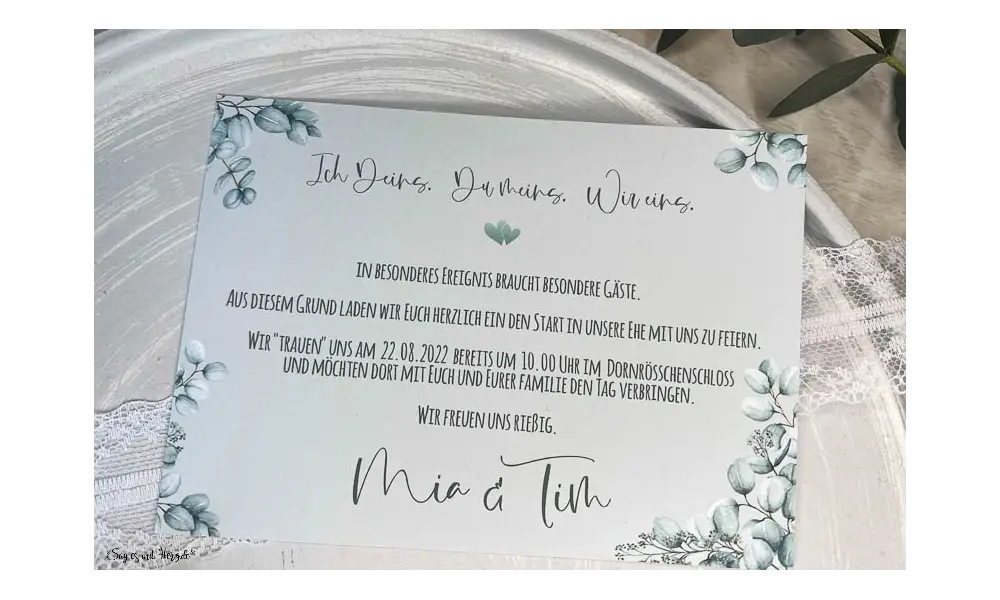 Ich Deins. Du meins. Wir eins.
in besonderes Ereignis braucht besondere Gäste.
Aus diesem Grund laden wir Euch herzlich ein den Start in unsere Ehe mit uns zu feiern.
Wir "trauen" uns am 22.08.2022 bereits um 10.00 Uhr im Dornrösschenschloss
und möchten dort mit Euch und Eurer familie den Tag verbringen.
Wir freuen uns rießig.
Mia & Tim
Say es mit Herz.de